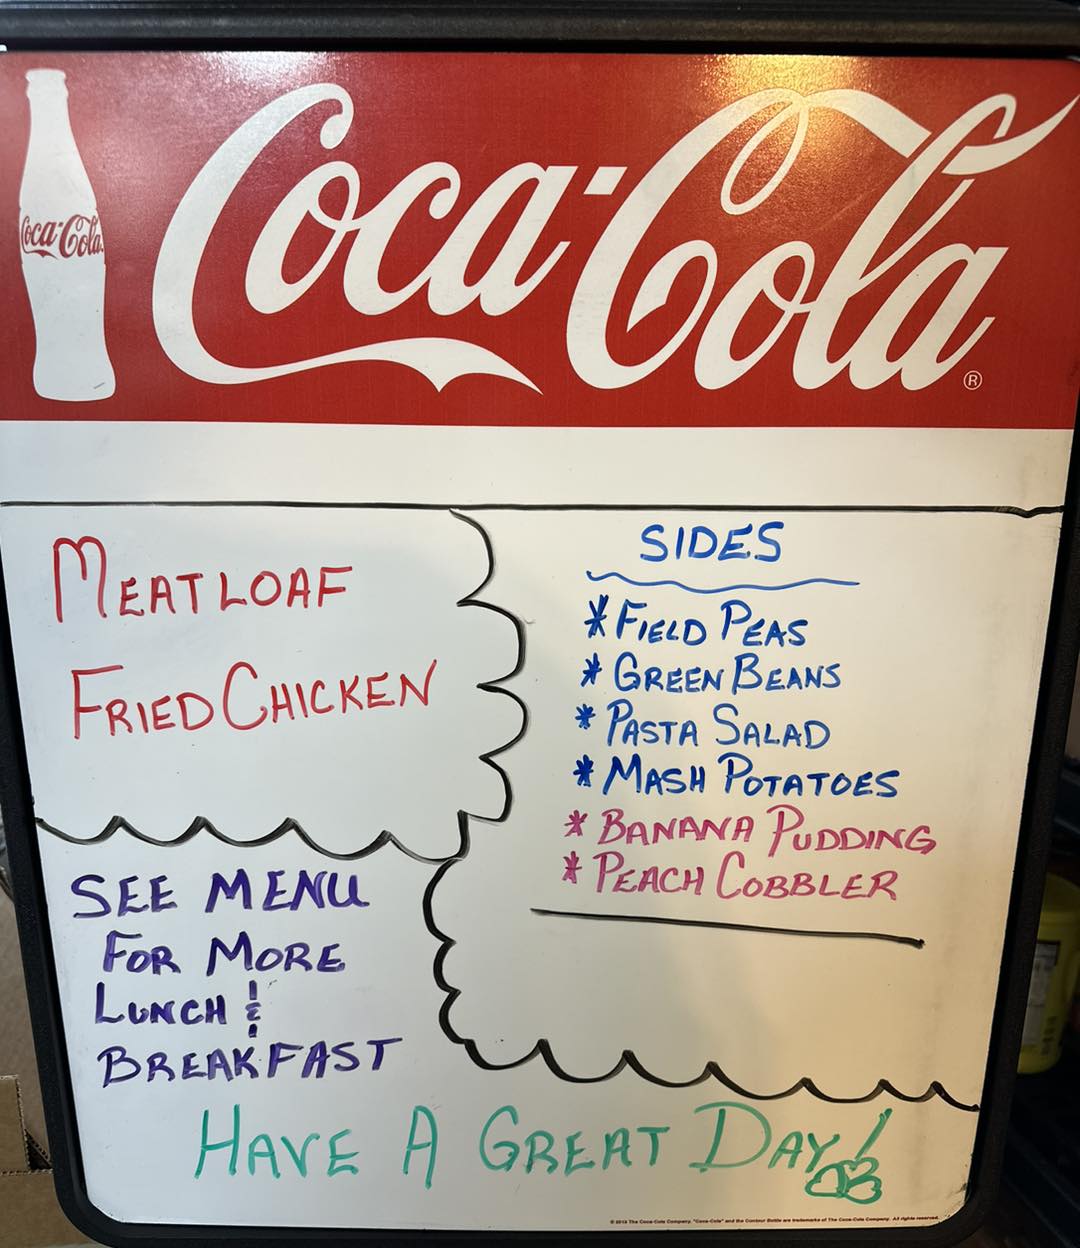 Coca-Cola
Coca-Cola®
MEATLOAF
FRIED CHICKEN
SIDES
* FIELD PEAS
* GREEN BEANS
* PASTA SALAD
* MASH POTATOES
* BANANA PUDDING
* PEACH COBBLER
SEE MENU
FOR MORE
LUNCH &
BREAKFAST
HAVE A GREAT DAY!
The Coca-Cola Company. "Coca-Cola" and the Contour Bottle are trademarks of The Coca-Cola Company. All rights reserved.